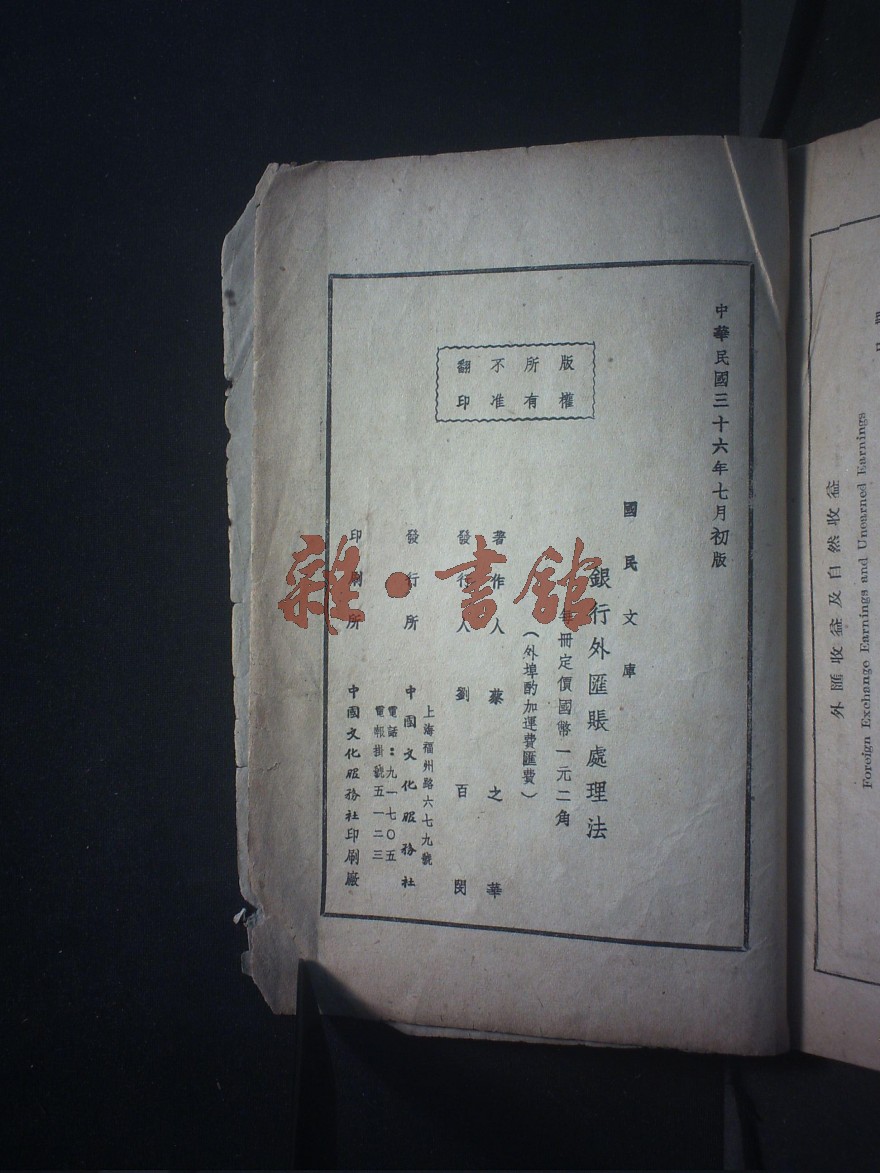 中華民國三十六年七月初版
版權
所有
不准
翻印
國民文庫
銀行外匯賬處理法
每冊定價國幣一元二角
(外埠酌加運費匯費)
著作人 蔡之華
發行人 劉百閔
發行所 中國文化服務社
上海福州路六七九號
電話:九一七〇五
電報掛號五一二三
印刷所 中國文化服務社印刷廠
雜·書館
外匯收益及自然收益
Foreign Exchange Earnings and Unearned Earnings